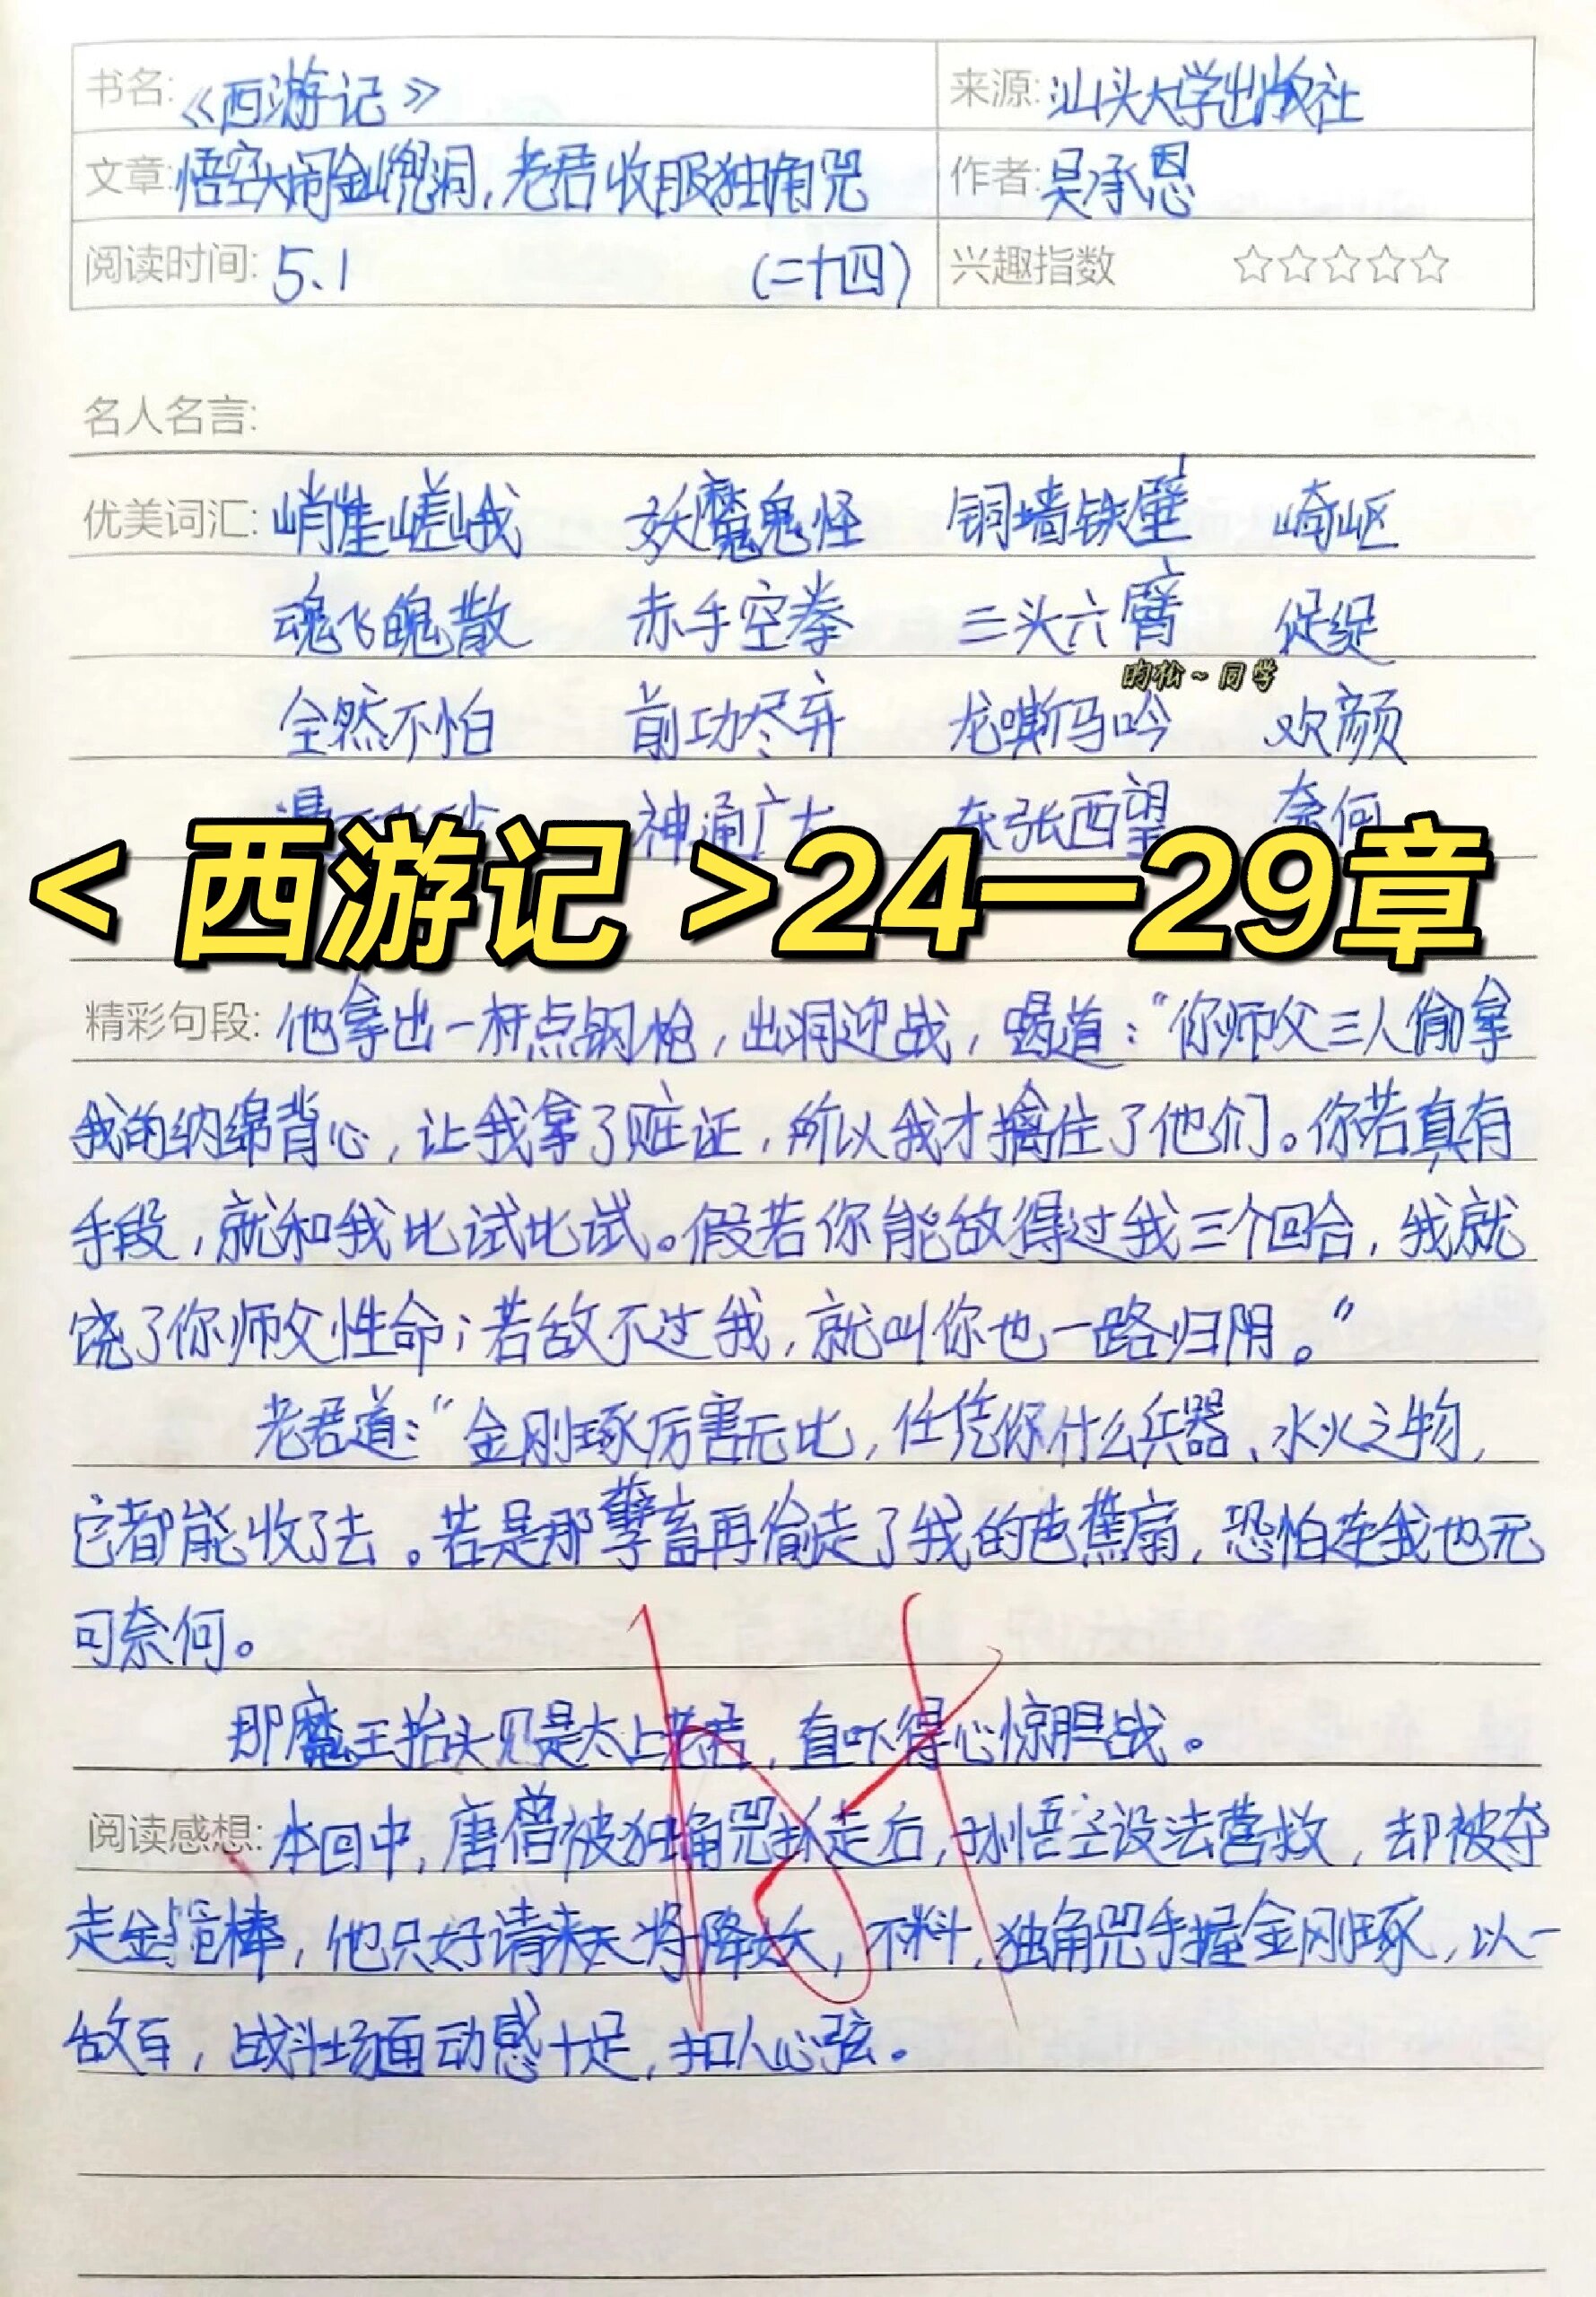 书名:《西游记》 来源:汕头大学出版社
文章:悟空大闹金山兜洞,老君收服独角兕 作者:吴承恩
阅读时间:5.1 (二十四) 兴趣指数 ☆☆☆☆☆
名人名言:
优美词汇: 峭崖嵯峨 妖魔鬼怪 铜墙铁壁 崎岖
魂飞魄散 赤手空拳 三头六臂 促织
昀松~同学
全然不怕 前功尽弃 龙嘶马吟 欢颜
神通广大 东张西望 奈何
<西游记>24—29章
精彩句段: 他拿出一杆点钢枪,出洞迎战,喝道:“你师父三人偷拿
我的纳绵背心,让我拿了赃证,所以我才擒住了他们。你若真有
手段,就和我比试比试。假若你能敌得过我三个回合,我就
饶了你师父性命;若敌不过我,就叫你也一路归阴。”
老君道:“金刚琢厉害无比,任凭你什么兵器、水火之物,
它都能收了去。若是那孽畜再偷走了我的芭蕉扇,恐怕连我也无
可奈何。
那魔王抬头见是太上老君,直吓得心惊胆战。
阅读感想: 本回中,唐僧被独角兕抓走后,孙悟空设法营救,却被夺
走金箍棒,他只好请来天将降妖,不料,独角兕手握金刚琢,以一
敌百,战斗场面动感十足,扣人心弦。